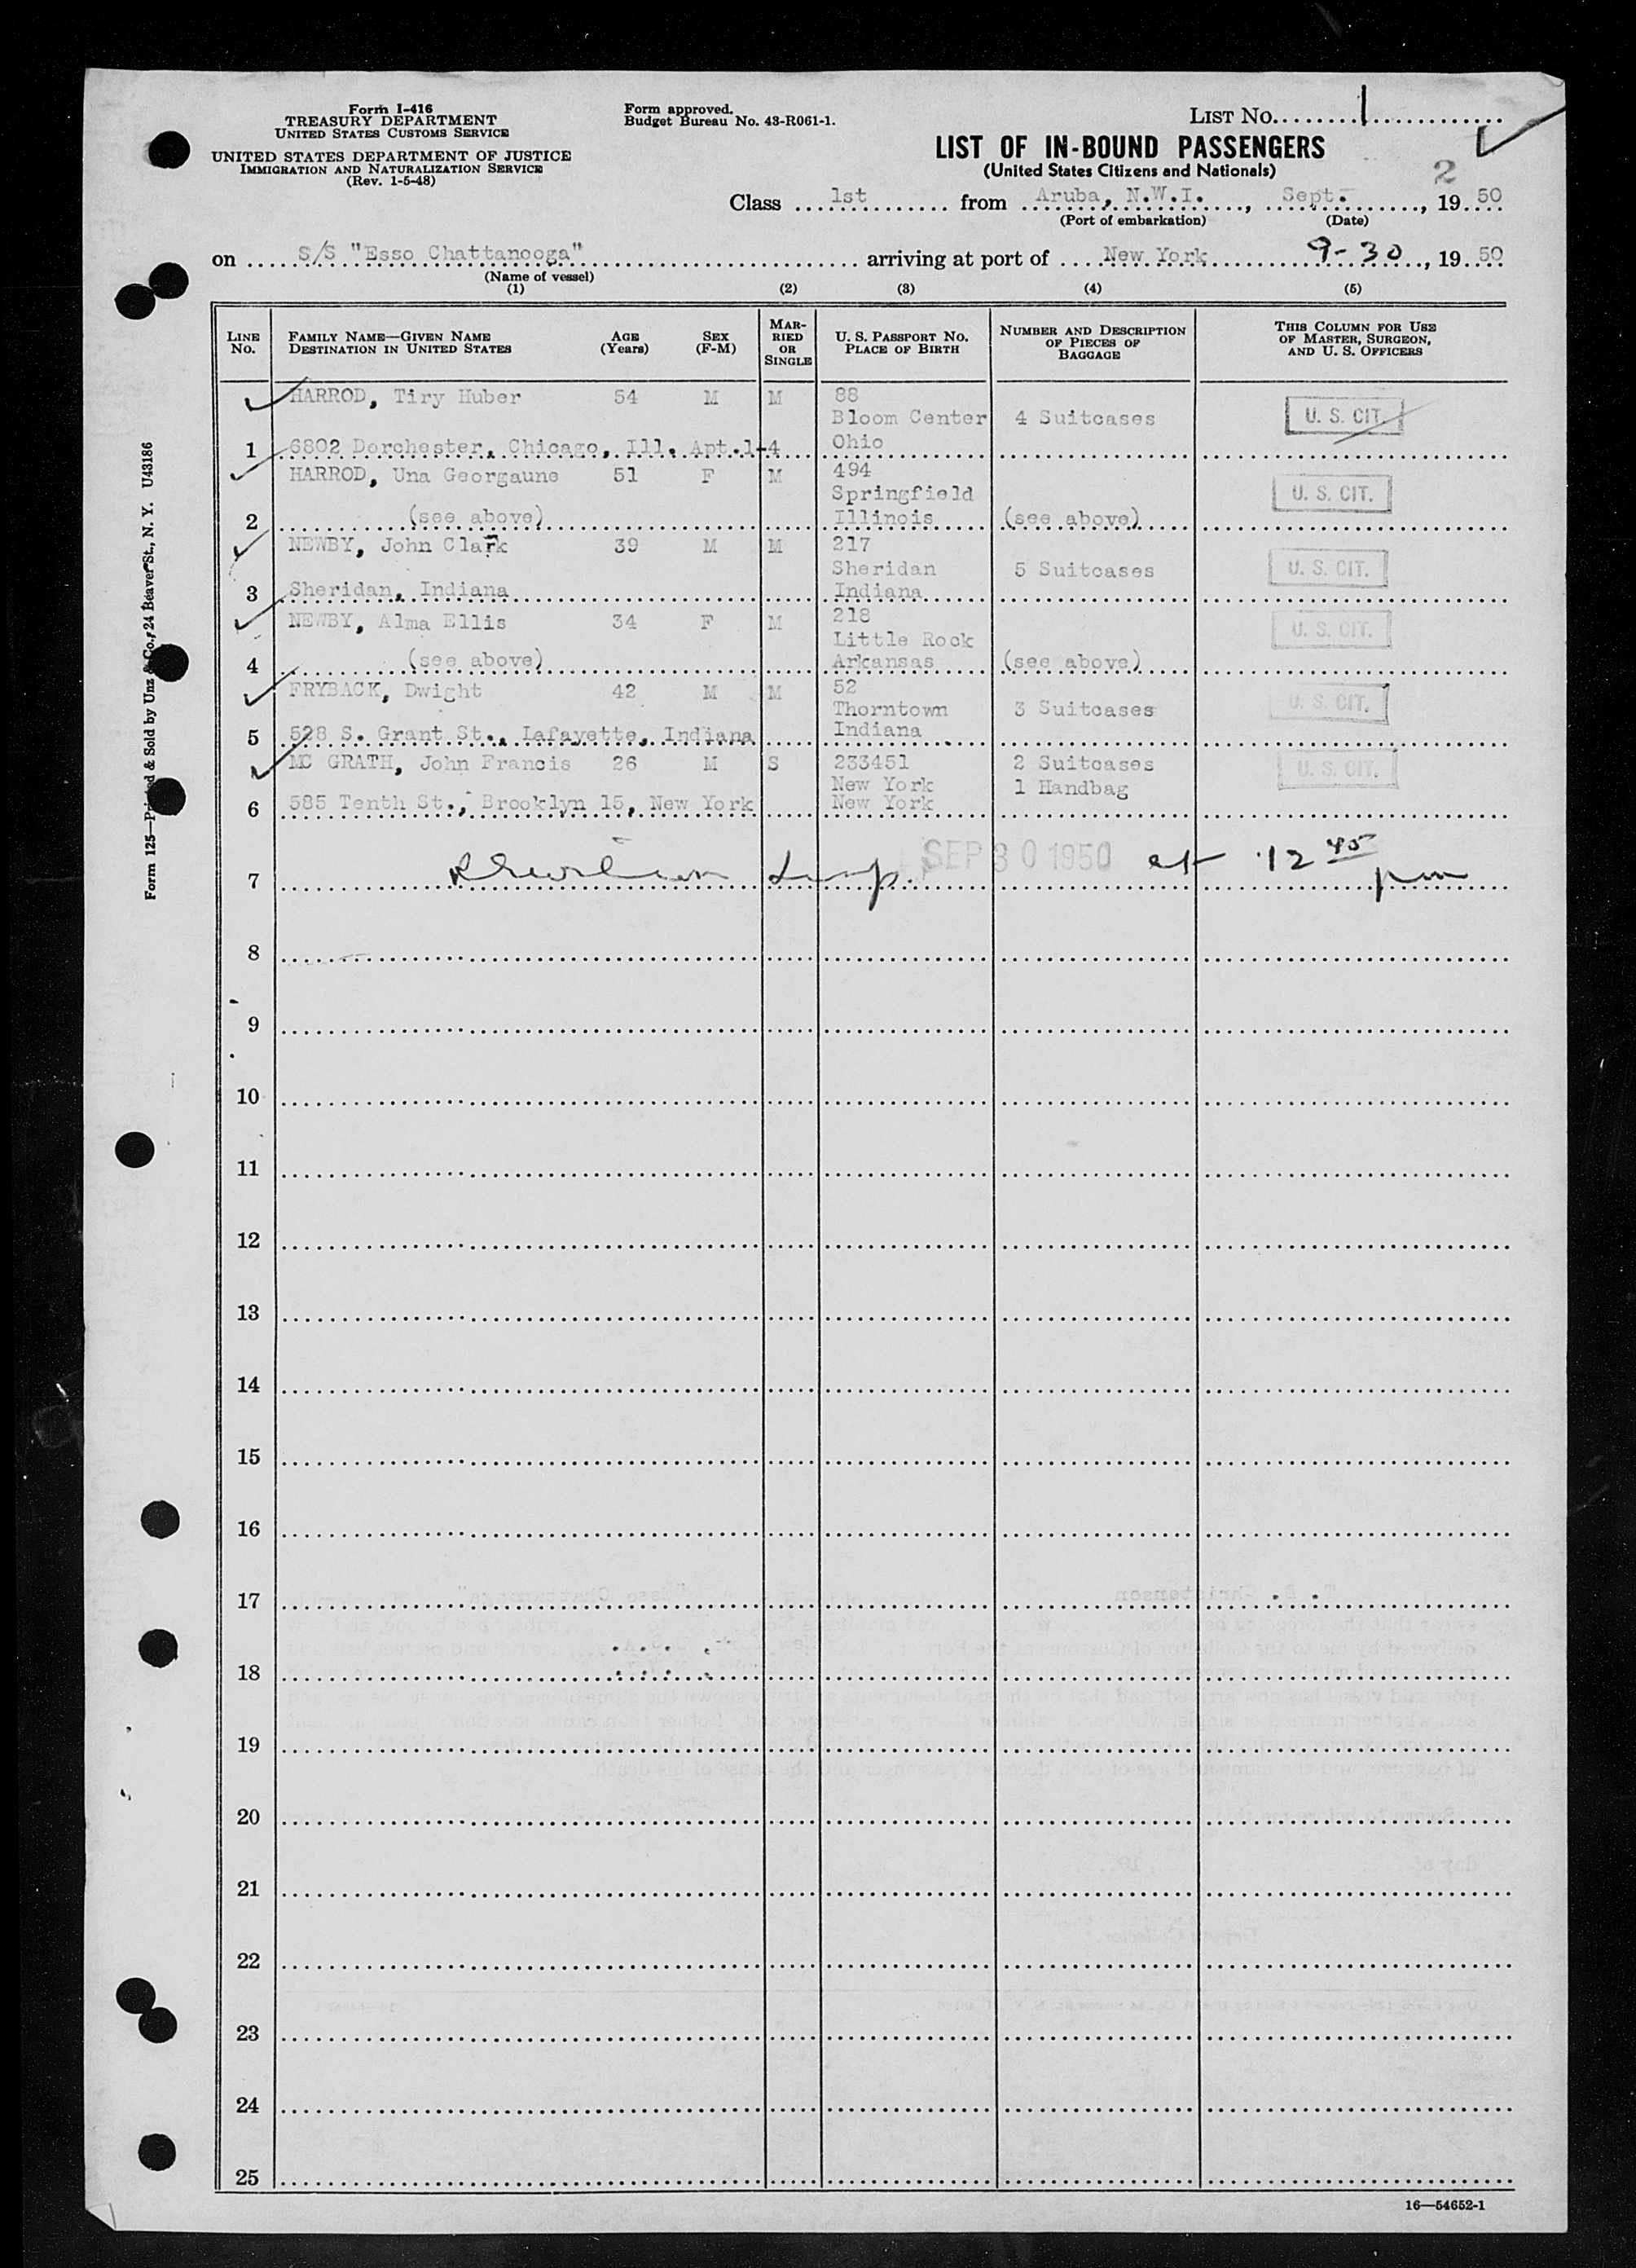 Form I-416
TREASURY DEPARTMENT
UNITED STATES CUSTOMS SERVICE
UNITED STATES DEPARTMENT OF JUSTICE
IMMIGRATION AND NATURALIZATION SERVICE
(Rev. 1-5-48)
Form approved.
Budget Bureau No. 43-R061-1.
LIST No. 1
LIST OF IN-BOUND PASSENGERS
(United States Citizens and Nationals)
2
Class 1st from Aruba, N.W.I., Sept., 19 50
(Port of embarkation) (Date)
on S/S "Esso Chattanooga" arriving at port of New York 9-30, 19 50
(Name of vessel)
(1) (2) (3) (4) (5)
LINE No.
FAMILY NAME—GIVEN NAME
DESTINATION IN UNITED STATES
AGE (Years)
SEX (F-M)
MARRIED OR SINGLE
U. S. PASSPORT NO.
PLACE OF BIRTH
NUMBER AND DESCRIPTION OF PIECES OF BAGGAGE
THIS COLUMN FOR USE OF MASTER, SURGEON, AND U. S. OFFICERS
HARROD, Tiry Huber 54 M M 88
Bloom Center 4 Suitcases U. S. CIT.
1 6802 Dorchester, Chicago, Ill. Apt.1-4 Ohio
HARROD, Una Georgaune 51 F M 494
Springfield U. S. CIT.
2 (see above) Illinois (see above)
NEWBY, John Clark 39 M M 217
Sheridan 5 Suitcases U. S. CIT.
3 Sheridan, Indiana Indiana
NEWBY, Alma Ellis 34 F M 218
Little Rock U. S. CIT.
4 (see above) Arkansas (see above)
FRYBACK, Dwight 42 M M 52
Thorntown 3 Suitcases U. S. CIT.
5 528 S. Grant St., Lafayette, Indiana Indiana
MC GRATH, John Francis 26 M S 233451 2 Suitcases U. S. CIT.
New York 1 Handbag
6 585 Tenth St., Brooklyn 15, New York New York
7 SEP 30 1950 at 12 45 pm
8
9
10
11
12
13
14
15
16
17
18
19
20
21
22
23
24
25
16—54652-1
Form 125—Printed & Sold by Unz & Co., 24 Beaver St., N. Y. U43186